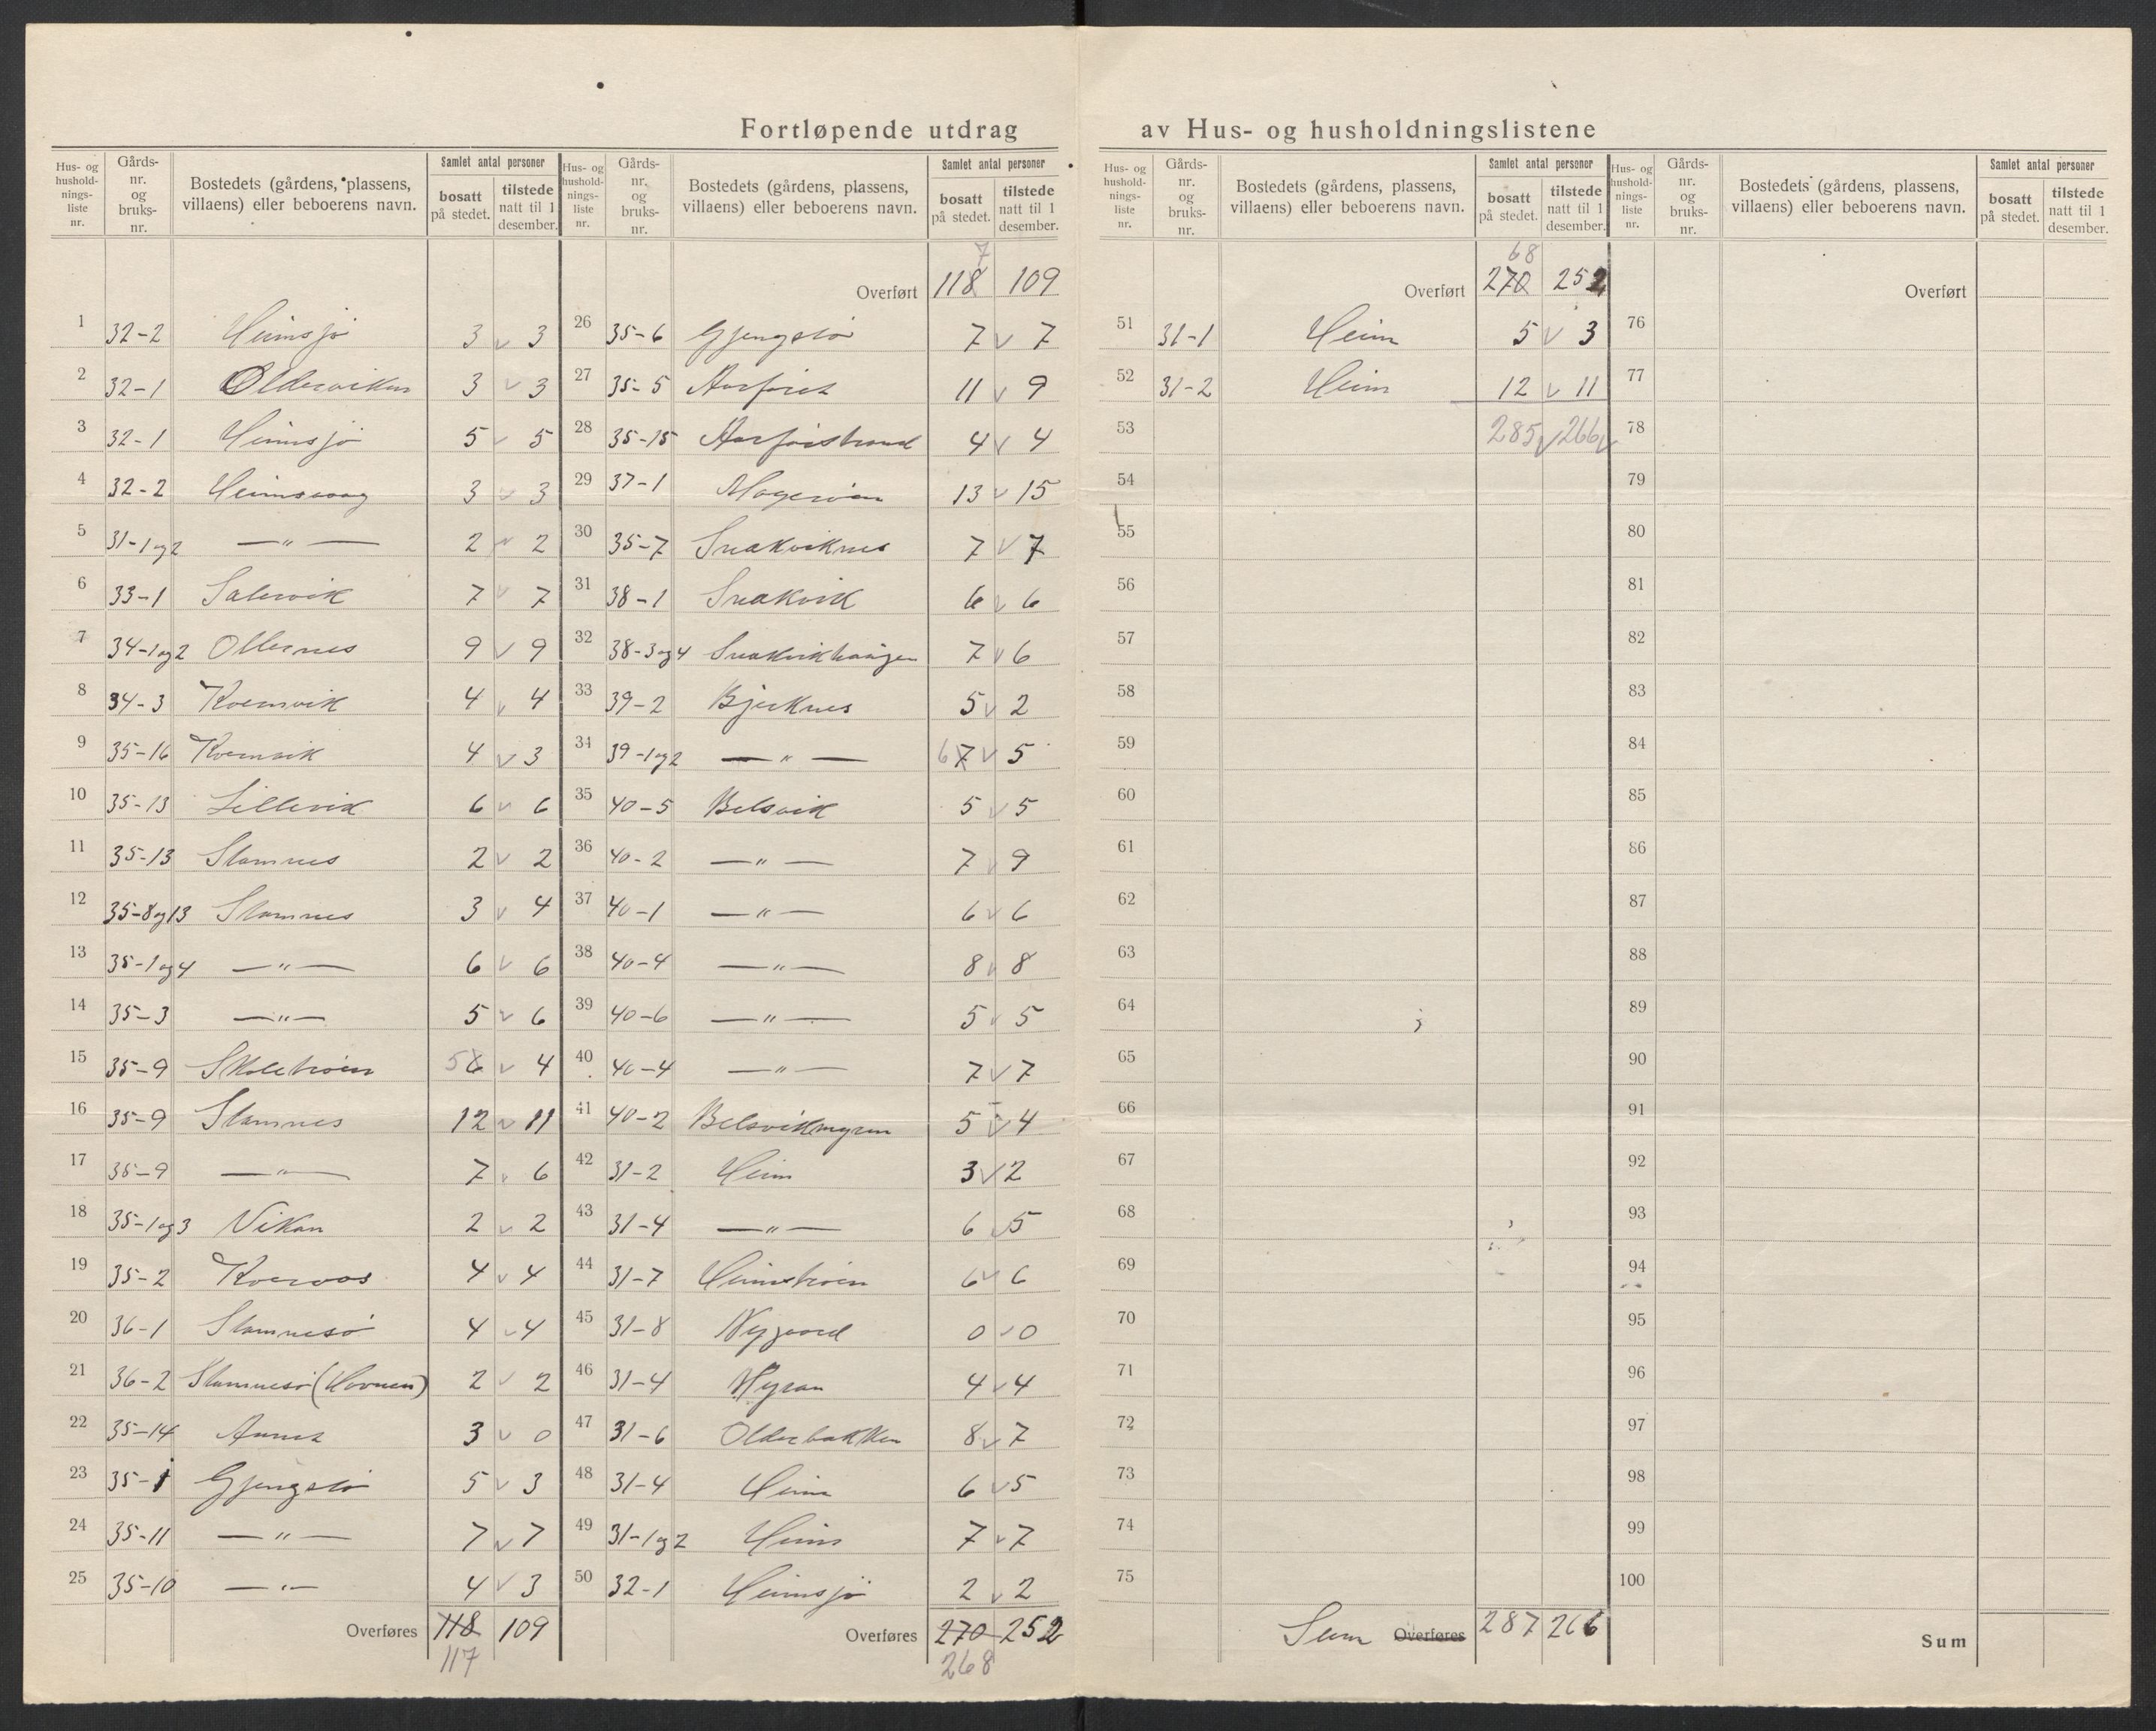 Fortløpende utdrag av Hus- og husholdningslistene
Hus- og husholdnings-liste nr. | Gårds-nr. og bruks-nr. | Bostedets (gårdens, plassens, villaens) eller beboerens navn. | Samlet antal personer | bosatt på stedet. | tilstede natt til 1 desember.
Hus- og husholdnings-liste nr. | Gårds-nr. og bruks-nr. | Bostedets (gårdens, plassens, villaens) eller beboerens navn. | Samlet antal personer | bosatt på stedet. | tilstede natt til 1 desember.
Hus- og husholdnings-liste nr. | Gårds-nr. og bruks-nr. | Bostedets (gårdens, plassens, villaens) eller beboerens navn. | Samlet antal personer | bosatt på stedet. | tilstede natt til 1 desember.
Hus- og husholdnings-liste nr. | Gårds-nr. og bruks-nr. | Bostedets (gårdens, plassens, villaens) eller beboerens navn. | Samlet antal personer | bosatt på stedet. | tilstede natt til 1 desember.
1 32-2 Heimsjø 3 v 3
2 32-1 Oldervikan 3 v 3
3 32-1 Heimsjø 5 v 5
4 32-2 Heimsvaag 3 v 3
5 31-1 og 2 —"— 2 v 2
6 33-1 Salervik 7 v 7
7 34-1 og 2 Ollernes 9 v 9
8 34-3 Kvernvik 4 v 4
9 35-16 Kvernvik 4 v 3
10 35-13 Lillevik 6 v 6
11 35-13 Stamnes 2 v 2
12 35-8 og 13 Stamnes 3 v 4
13 35-1 og 4 —"— 6 v 6
14 35-3 —"— 5 v 6
15 35-9 Skoletrøen 5 6 v 4
16 35-9 Stamnes 12 v 11
17 35-9 —"— 7 v 6
18 35-1 og 3 Vikan 2 v 2
19 35-2 Kvervaas 4 v 4
20 36-1 Stamnesø 4 v 4
21 36-2 Stamnesø (Havnen) 2 v 2
22 35-14 Aunet 3 v 0
23 35-1 Gjengstø 5 v 3
24 35-11 —"— 7 v 7
25 35-10 —"— 4 v 3
Overføres 118 109
117
7
Overført 118 109
26 35-6 Gjengstø 7 v 7
27 35-5 Aarforet 11 v 9
28 35-15 Aarforstrand 4 v 4
29 37-1 Magerøen 13 v 15
30 35-7 Snekviknes 7 v 7
31 38-1 Snekvik 6 v 6
32 38-3 og 4 Snekvikhaugen 7 v 6
33 39-2 Bjerknes 5 v 2
34 39-1 og 2 —"— 6 7 v 5
35 40-5 Belsvik 5 v 5
36 40-2 —"— 7 v 9
37 40-1 —"— 6 v 6
38 40-4 —"— 8 v 8
39 40-6 —"— 5 v 5
40 40-4 —"— 7 v 7
41 40-2 Belsvikmyren 5 v 4
42 31-2 Heim 3 v 2
43 31-4 —"— 6 v 5
44 31-7 Heimstrøen 6 v 6
45 31-8 Nygaard 0 v 0
46 31-4 Myran 4 v 4
47 31-6 Olderbakken 8 v 7
48 31-4 Heim 6 v 5
49 31-1 og 2 Heim 7 v 7
50 32-1 Heimsjø 2 v 2
Overføres 270 252
268
68
Overført 270 252
51 31-1 Heim 5 v 3
52 31-2 Heim 12 v 11
53 285 v 266 v
54
55
56
57
58
59
60
61
62
63
64
65
66
67
68
69
70
71
72
73
74
75
Sum Overføres 287 266
Overført
76
77
78
79
80
81
82
83
84
85
86
87
88
89
90
91
92
93
94
95
96
97
98
99
100
Sum